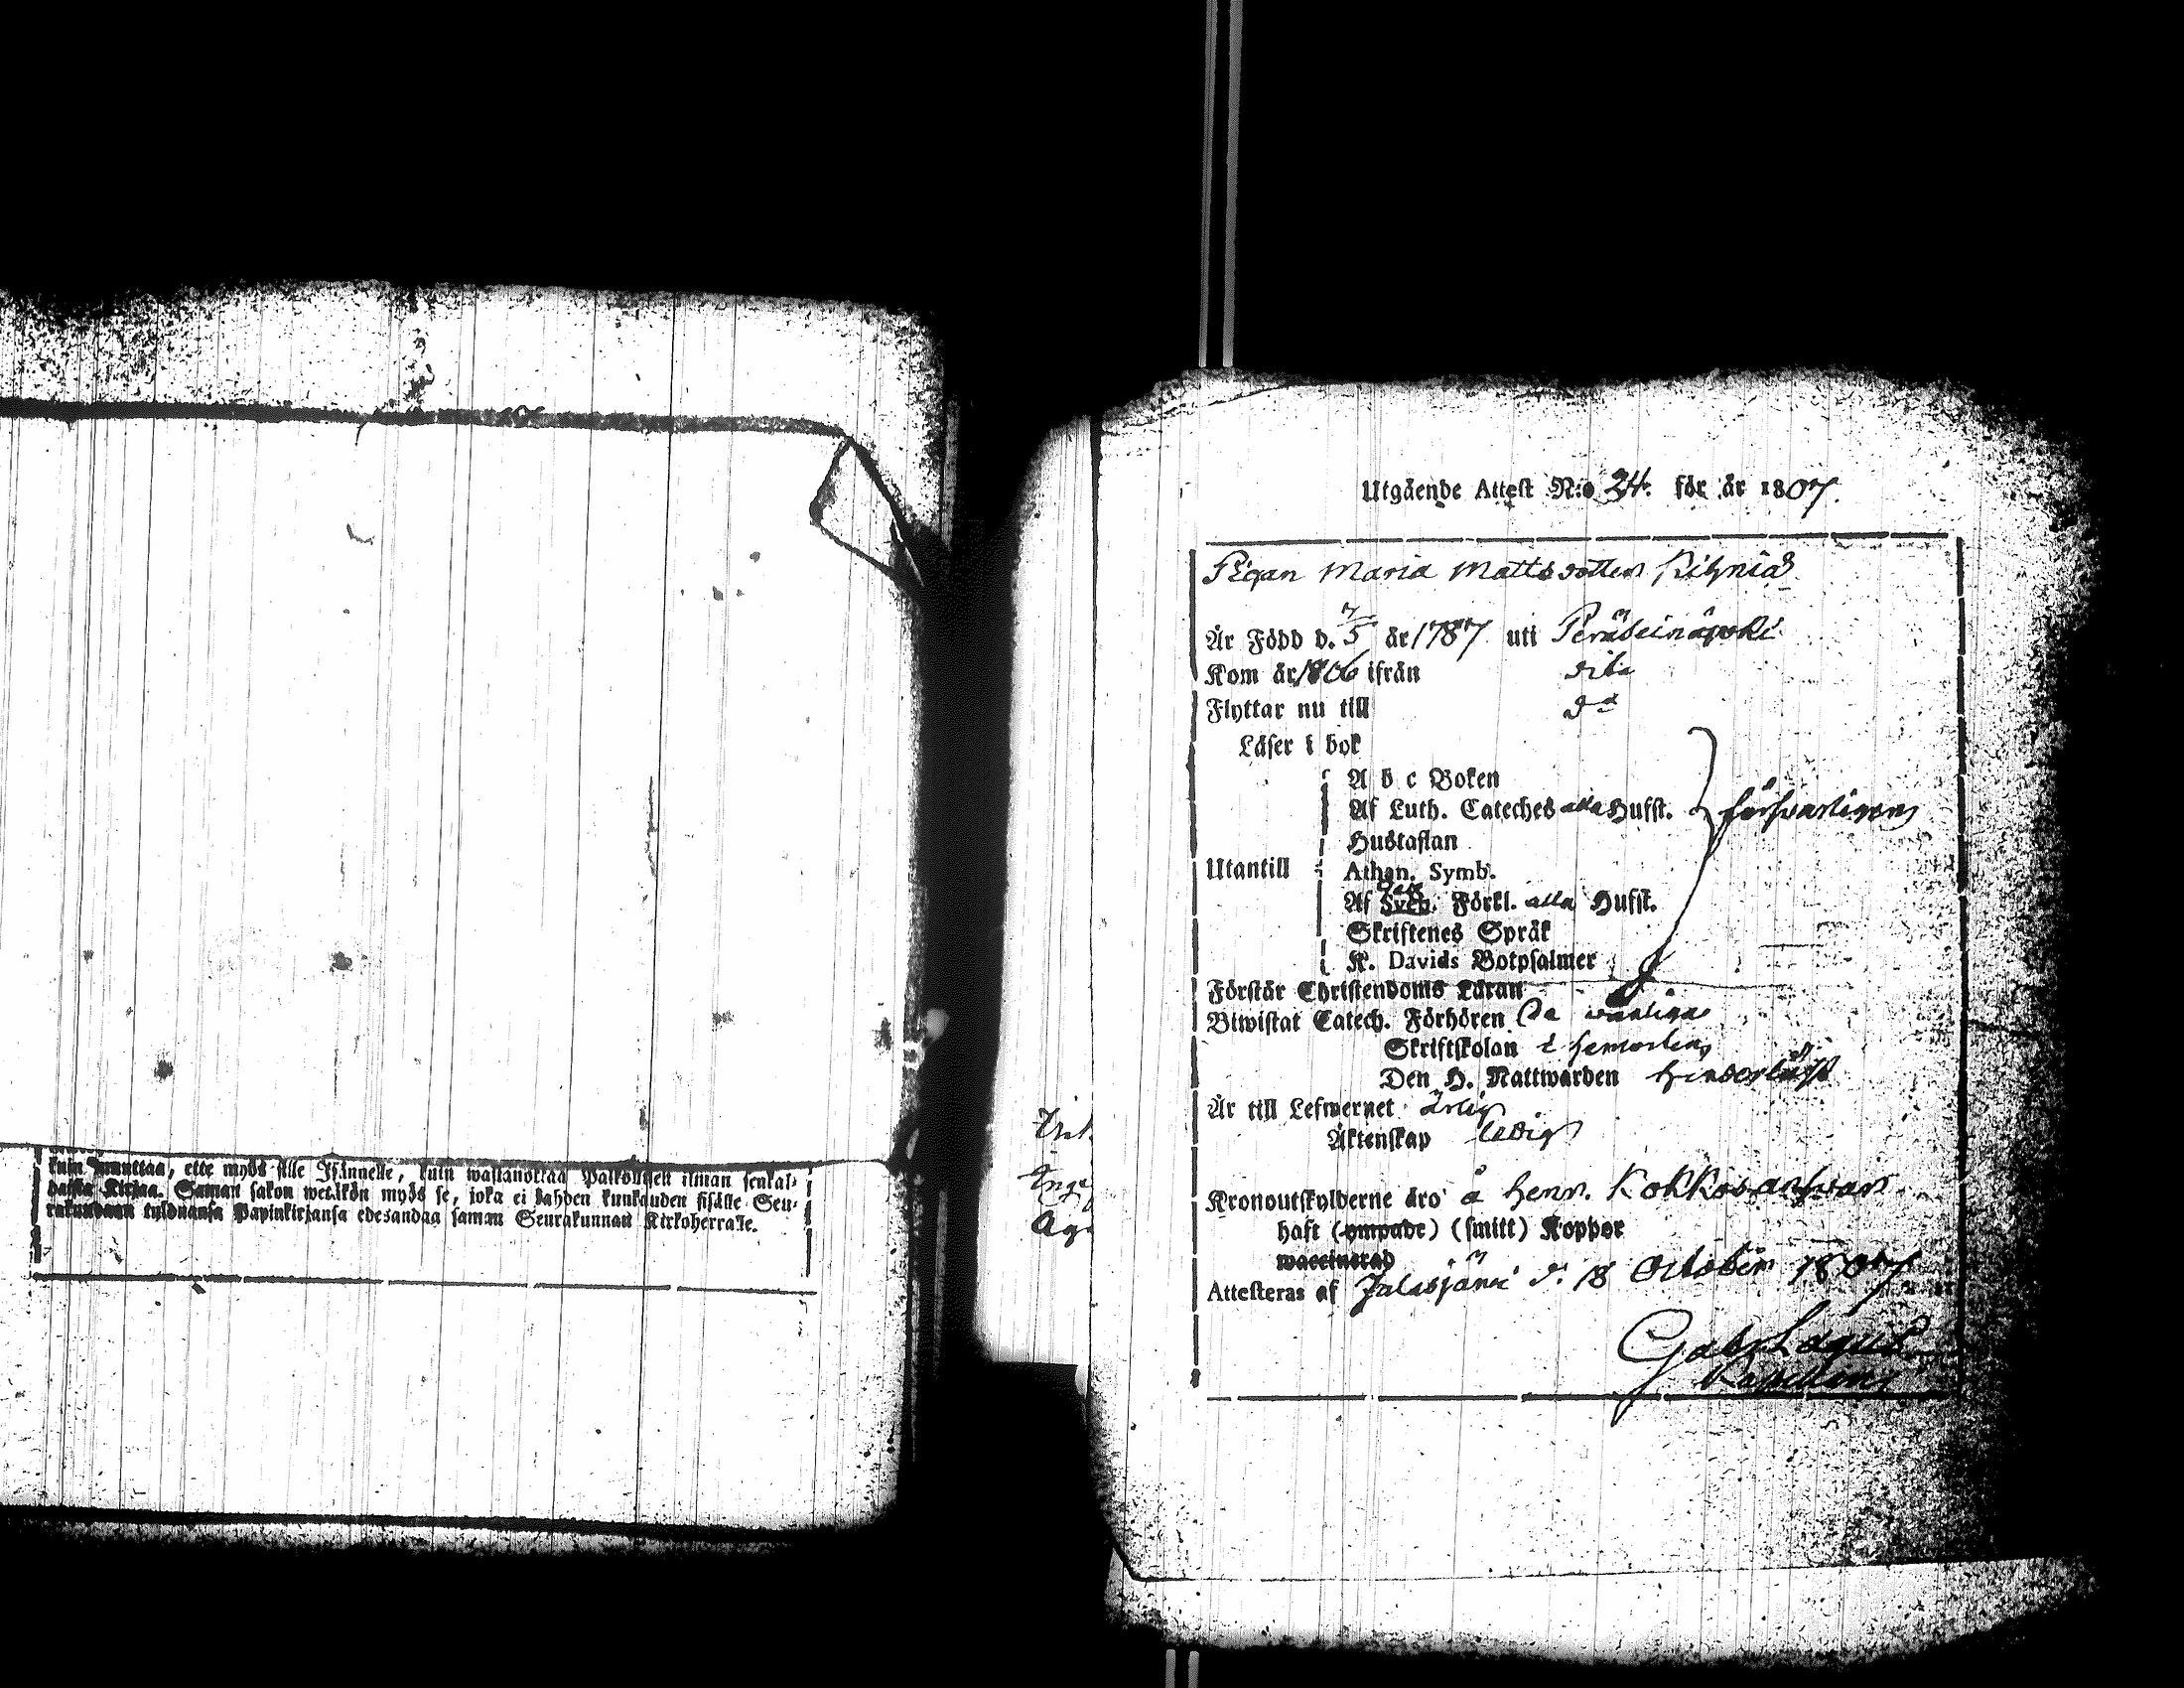 kuin muuttaa, ette myös sille Isännelle, kuin wastanottaa Palkollisen ilman senkal-
daista Kirjaa. Saman sakon wetäkön myös se, joka ei kahden kuukauden sisälle Seu-
rakundaan tulduansa Papinkirjansa edesandaa saman Seurakunnan Kirkoherralle.
Inge
Utgående Attest N:o 24. för år 1807.
Pigan Maria Mattsdotter
Är Född d. 7/5 år 1787 uti Peräseinäjoki
Kom år 1806 ifrån dito
Flyttar nu till do
Läser i bok
A b c Boken
Af Luth. Cateches alla Hufst. försvarligen
Hustaflan
Utantill Athan. Symb.
Af Sveb. Förkl. alla Hufst.
Skriftenes Språk
K. Davids Botpsalmer
Förstår Christendoms Läran
Biwistat Catech. Förhören
Skriftskolan
Den H. Nattwarden
Är till Lefwernet ärlig
Äktenskap ledig
Kronoutskylderne äro å Henr.
haft (ympade) (smitt) Koppor
waccinerad
Attesteras af Jalasjärvi d. 18 October 1807
Gabr. Lagus
Kapellan